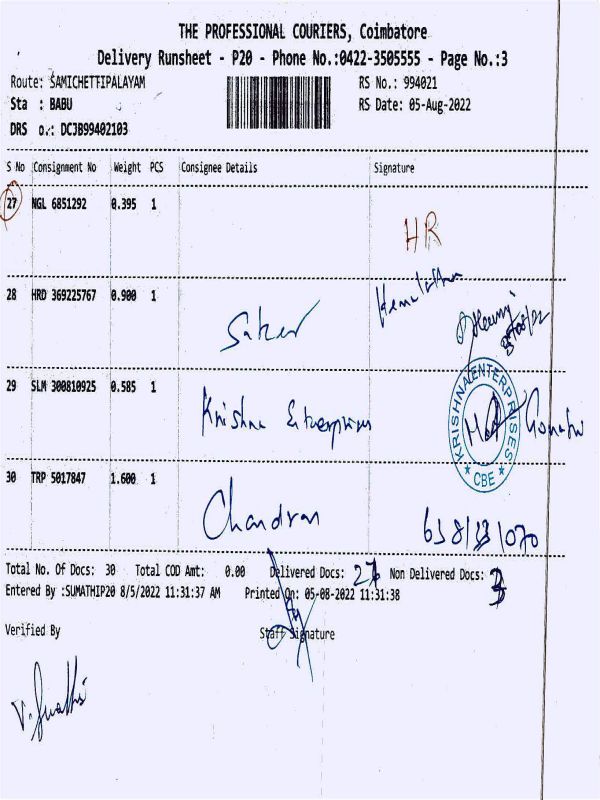 THE PROFESSIONAL COURIERS, Coimbatore
Delivery Runsheet - P20 - Phone No.:0422-3505555 - Page No.:3
Route: SAMICHETTIPALAYAM RS No.: 994021
Sta : BABU RS Date: 05-Aug-2022
DRS o.: DCJB99402103
S No Consignment No Weight PCS Consignee Details Signature
27 NGL 6851292 0.395 1
HR
28 HRD 369225767 0.900 1
29 SLM 300810925 0.585 1
Krishna Enterprises
KRISHNA ENTERPRISES
★ CBE ★
30 TRP 5017847 1.600 1
Chandran
Total No. Of Docs: 30 Total COD Amt: 0.00 Delivered Docs: 27 Non Delivered Docs: 3
Entered By :SUMATHIP20 8/5/2022 11:31:37 AM Printed On: 05-08-2022 11:31:38
Verified By Staff Signature